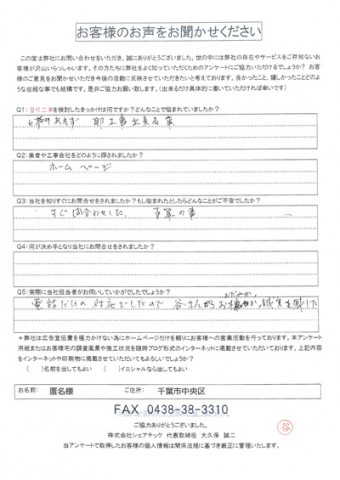 お客様のお声をお聞かせください
この度は弊社にお問い合わせをいただき、誠にありがとうございました。世の中には弊社の存在やサービスをご存知ないお
客様が沢山いらっしゃいます。その方たちに弊社をよく知っていただくためのアンケートにご協力いただけるでしょうか？ お客
様のご意見をお聞かせいただき今後の活動に反映させていただきたいと考えております。良かったこと、嬉しかったことどのよ
うな些細な事でも結構です。是非ご協力お願い致します。（出来るだけ具体的に書いていただければ幸いです）
Q1：塗付工事を検討したきっかけは何ですか？どんなことで悩まれていましたか？
Q2：業者や工事会社をどのように探されましたか？
ホームページ
Q3：当社を知りすぐにお問合せをされましたか？もし悩まれたとしたらどんなことがご不安でしたか？
すぐ問合わせした。
Q4：何が決め手となり当社にお問合せをされましたか？
Q5：実際に当社担当者がお伺いしていかがでしたでしょうか？
電話だけの対応でしたので
＊弊社は広告宣伝費を極力かけない為にホームページだけを頼りにお客様への営業活動を行っております。本アンケート
用紙またはお客様宅の調査風景や施工状況を随時ブログ形式のインターネットに掲載させていただいております。上記内容
をインターネットや印刷物に掲載させていただいてもよろしいでしょうか？
（ ）名前を出しても良い （ ）イニシャルなら出しても良い
お名前: 匿名様 ご住所: 千葉市中央区
FAX 0438-38-3310
ご協力ありがとうございました。
株式会社シェアテック 代表取締役 太久保 誠二
当アンケートで取得したお客様の個人情報は関係法規に基づき厳正に管理いたします。
谷